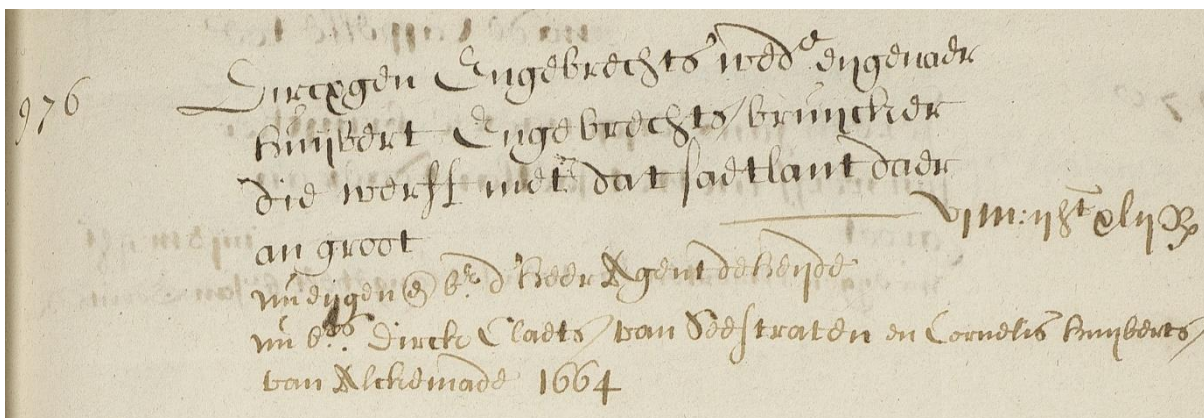 976 Dircxgen Engebrechts wed^e eijgenaer
Huijbert Engebrechts / bruijcker
die werff met dat saetlant daer
an groot vj m: ij h^t xlij R
nu eijgen en b^r d'heer Agent de heijde
nu b^rs Dirck Claets / van Seestraten en Cornelis huijberts /
van Alckemade 1664